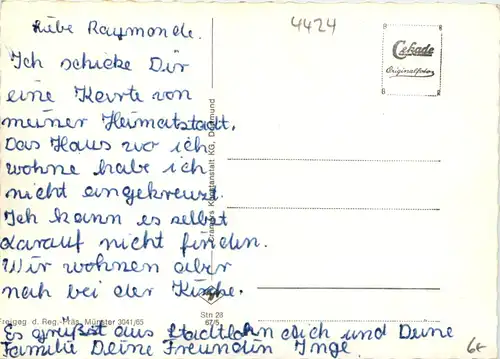 Liebe Raymonde.
4424
Cekade
Originalfoto
Ich schicke Dir
eine Karte von
meiner Heimatstadt.
Das Haus wo ich
wohne habe ich
nicht angekreuzt.
Ich kann es selbst
darauf nicht finden.
Wir wohnen aber
nah bei der Kirche.
Cramers Kunstanstalt KG, Dortmund
Stn 28
67/5
Freigeg. d. Reg.-Präs. Münster 3041/65
Es grüßst aus Stadtlohn dich und Deine
Familie Deine Freundin Inge.